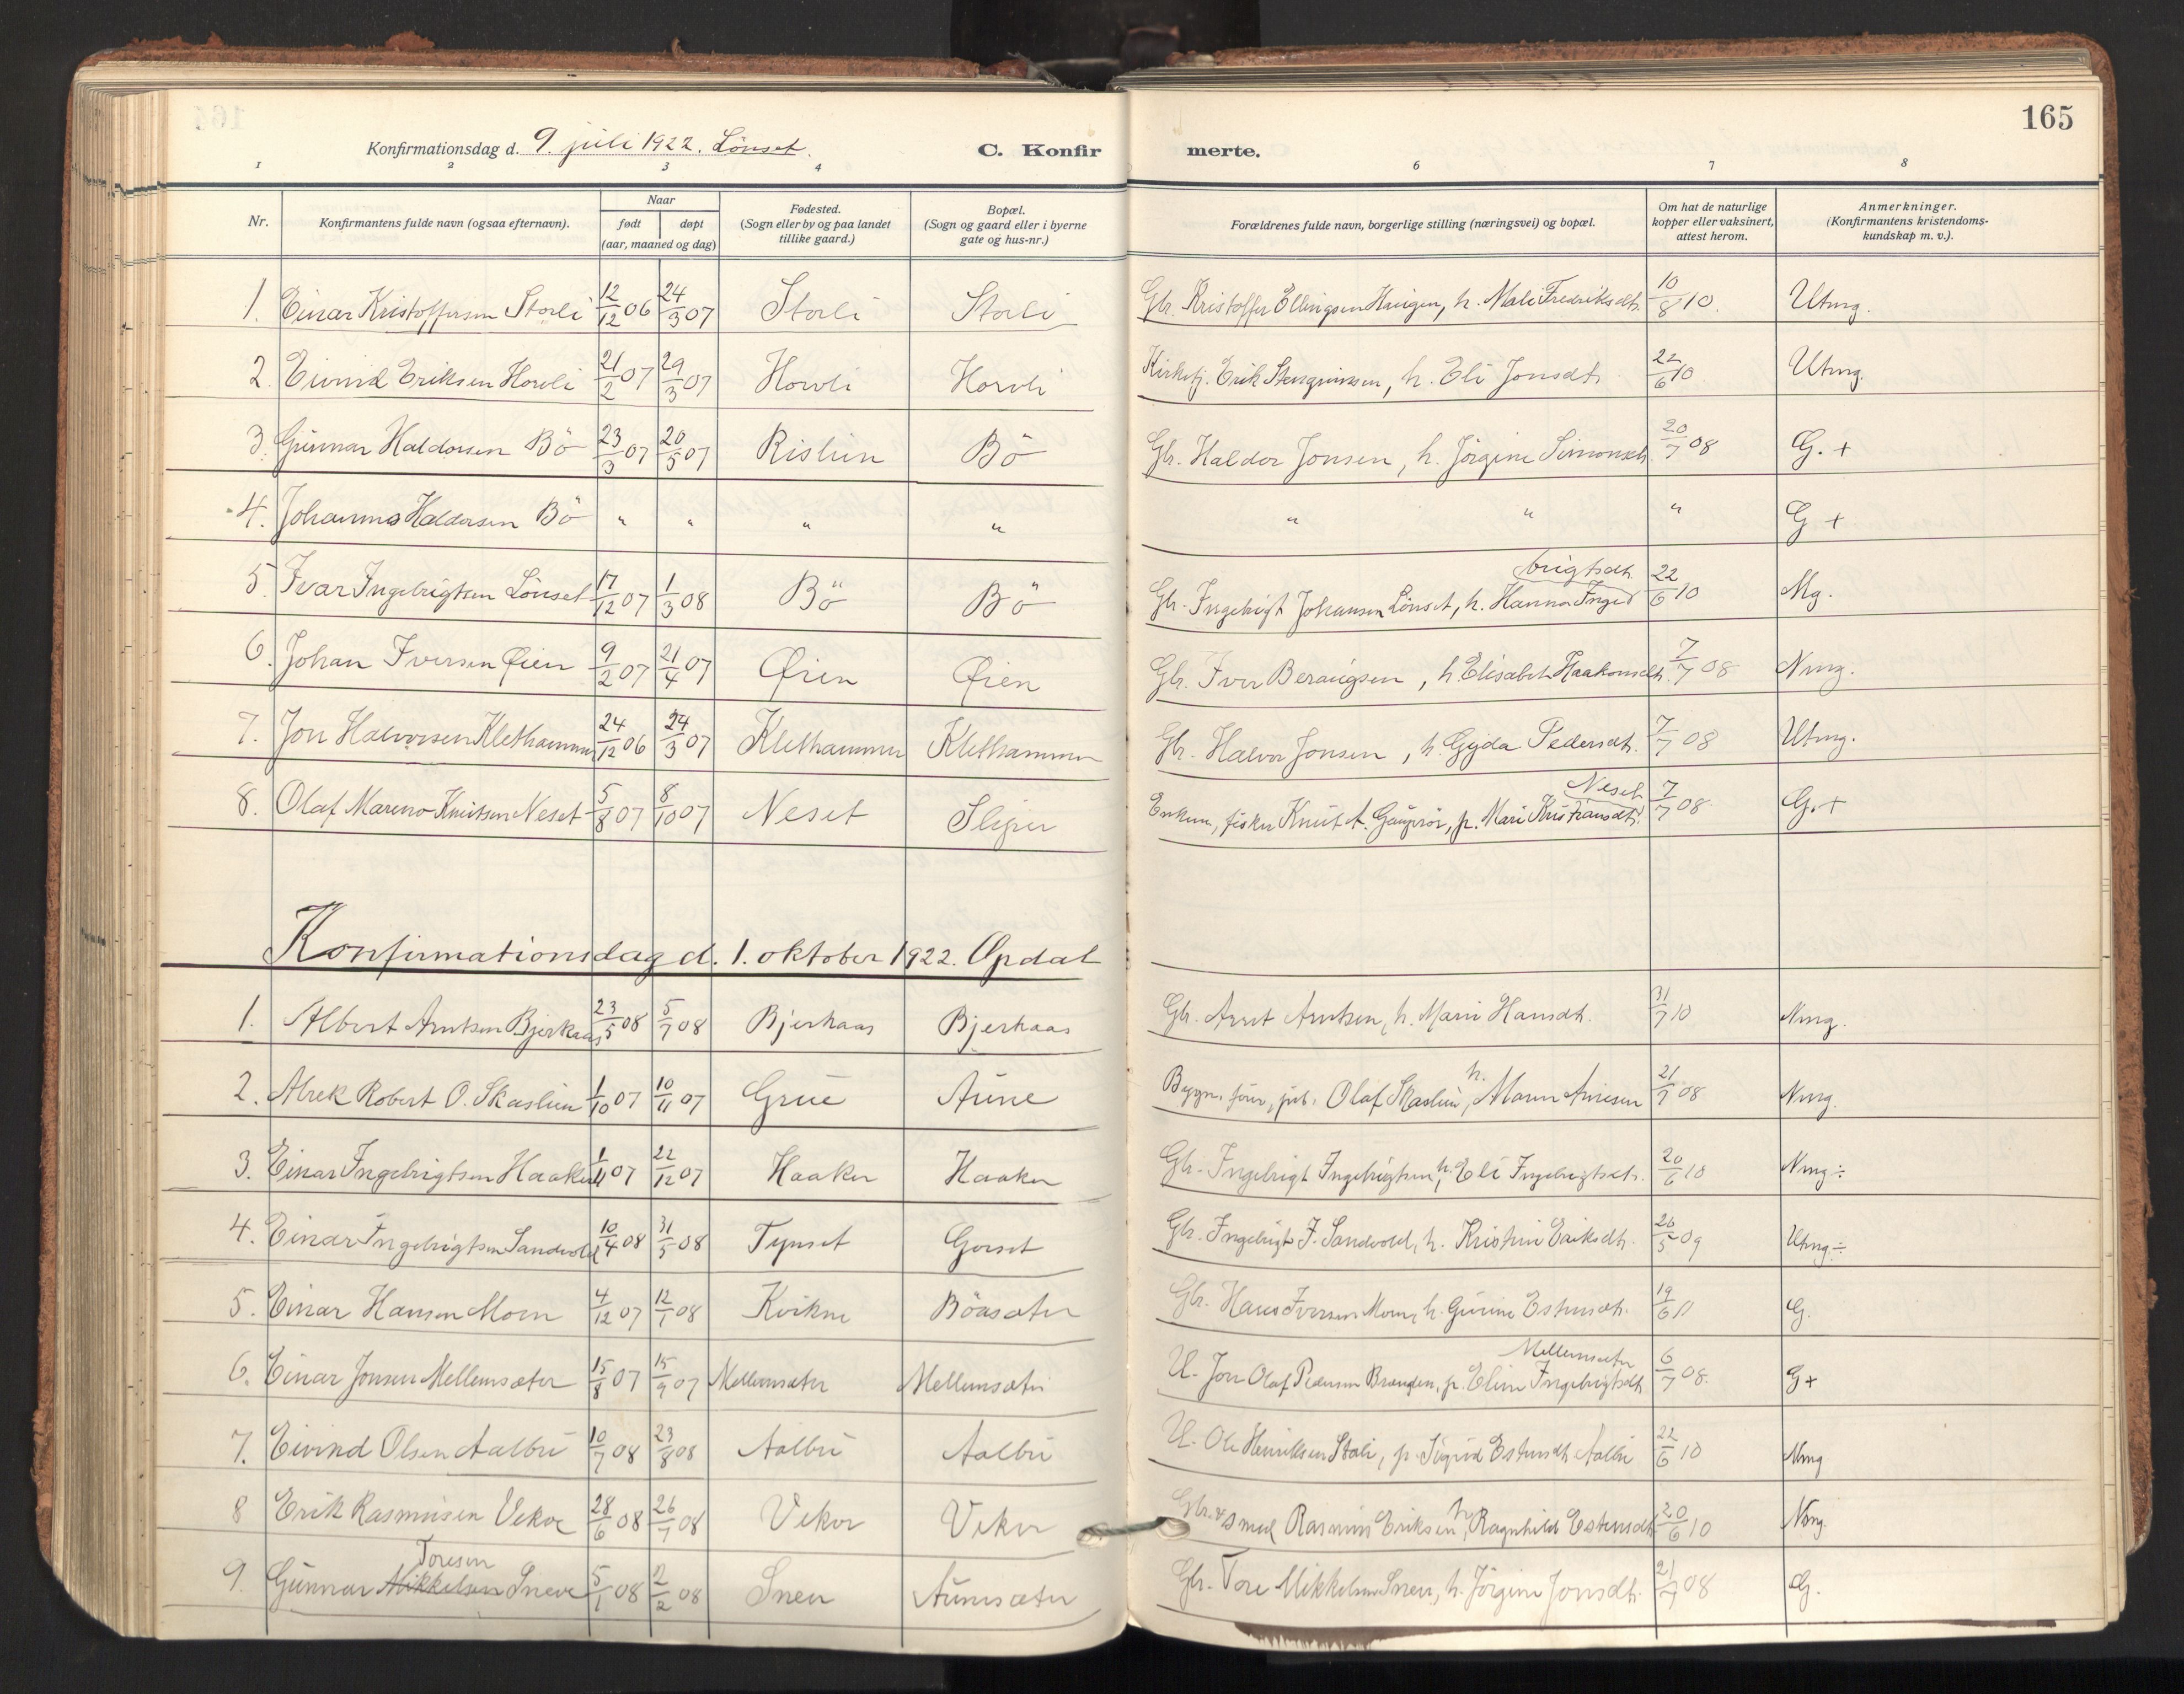 165
Konfirmationsdag d. 9. juli 1922. Lönset.
C. Konfir merte.
1 2 3 4 6 7 8
Nr. Konfirmantens fulde navn (ogsaa efternavn). Naar født døpt (aar, maaned og dag) Fødested. (Sogn eller by og paa landet tillike gaard.) Bopæl. (Sogn og gaard eller i byerne gate og hus-nr.) Forældrenes fulde navn, borgerlige stilling (næringsvei) og bopæl. Om hat de naturlige kopper eller vaksinert, attest herom. Anmerkninger. (Konfirmantens kristendoms-kundskap m. v.).
1. Einar Kristoffersen Storli 12/12 06 24/3 07 Storli Storli Gbr. Kristoffer Ellingsen Haugen, h. Mali Fredriksdt. 10/8 10. Utmg.
2. Eivind Eriksen Horvli 21/2 07 29/3 07 Horvli Horvli Kirketj. Erik Stengrimsen, h. Eli Jonsdt. 22/6 10 Utmg.
3. Gunnar Haldorsen Bö 23/3 07 20/5 07 Rislun Bö Gbr. Haldor Jonsen, h. Jörgine Simonsdt. 20/7 08 G. +
4. Johannes Haldorsen Bö " " " " " " " G +
5. Ivar Ingebrigtsen Lönset 17/12 07 1/3 08 Bö Bö Gbr. Ingebrigt Johansen Lönset, h. Hanna Inge brigtsdt. 22/6 10 Mg.
6. Johan Iversen Øien 9/2 07 21/4 07 Øien Øien Gbr. Iver Beraugsen, h. Elisabet Haakonsdt. 7/7 08 Nmg.
7. Jon Halvorsen Klethammer 24/12 06 24/3 07 Klethammer Klethammer Gbr. Halvor Jonsen, h. Gyda Pedersdt. 7/7 08 Utmg.
8. Olaf Mareno Knutsen Neset 5/8 07 8/10 07 Neset Sliper Enkem, fisker Knut A. Gaupröi, p. Mari Kristiansdt. Neset 7/7 08 G. +
Konfirmationsdag d. 1. oktober 1922. Opdal
1. Albert Arntsen Bjerkaas 23/5 08 5/7 08 Bjerkaas Bjerkaas Gbr. Arnt Arntsen, h. Mari Hansdt. 31/7 10 Nmg.
2. Alrek Robert O. Skaslien 1/10 07 10/11 07 Grue Aune Olaf Skaslien, h. Maren 21/7 08 Nmg.
3. Einar Ingebrigtsen Haaker 1/11 07 22/12 07 Haaker Haaker Gbr. Ingebrigt Ingebrigtsen, h. Eli Ingebrigtsdt. 20/6 10 Nmg ÷
4. Einar Ingebrigtsen Sandvold 10/4 08 31/5 08 Tynset Gorset Gbr. Ingebrigt J. Sandvold, h. Kristine Eriksdt. 26/5 09 Utmg ÷
5. Einar Hansen Moen 4/12 07 12/1 08 Kvikne Böasæter Gbr. Hans Iversen Moen, h. Gurine Estensdt. 19/6 11 G.
6. Einar Jonsen Mellemsæter 15/8 07 15/9 07 Mellemsæter Mellemsæter U. Jon Olaf Pedersen Brauden, p. Eline Ingebrigtsdt. Mellemsæter 6/7 08. G +
7. Eivind Olsen Aalbu 10/7 08 23/8 08 Aalbu Aalbu U. Ole Henriksen Stöli, p. Sigrid Estensdt. Aalbu 22/6 10 Nmg
8 Erik Rasmusen Vekve 28/6 08 26/7 08 Vekve Vekve Gbr. & smed Rasmus Eriksen, h. Ragnhild Estensdt. 20/6 10 Nmg.
9. Gunnar Mikkelsen Toresen Sneve 5/1 08 2/2 08 Sneve Aunesæter Gbr. Tore Mikkelsen Sneve, h. Jörgine Jonsdt. 21/7 08 G.